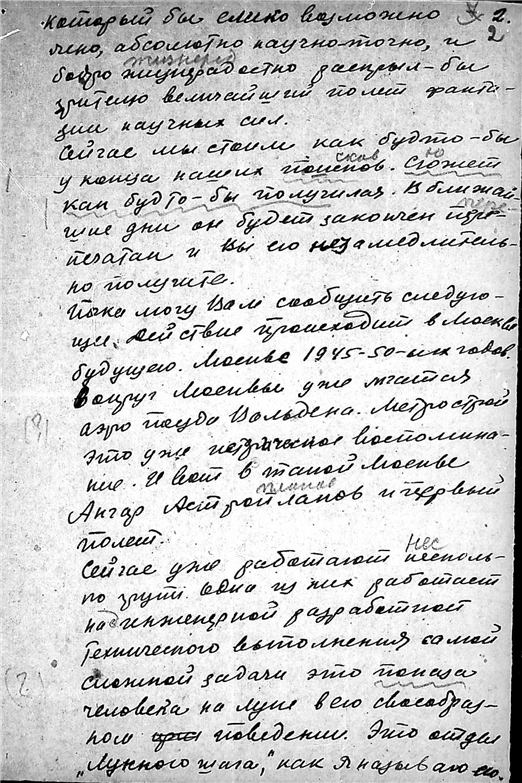 который бы елико возможно 2.
лено, абсолютно научно-точно, и 2
бодро жизнерад жизнерадостно раскрыл-бы
зрителю величайший полет фанта-
зии научных сил.
Сейчас мы стоим как будто-бы
у конца наших поисков. Сюжет
как будто-бы получился. В ближай-
шие дни он будет закончен пере-
печатан и Вы его незамедлитель-
но получите.
Пока могу Вам сообщить следую-
щее. Действие происходит в Москве
будущего. Москве 1945-50-ых годов.
Вокруг Москвы уже мчатся
аэро поезда Вальднера. Метрострой
это уже историческое воспомина-
ние. И вот в такой Москве
Ангар Астропланов и первый
полет.
Сейчас уже работают несколь-
ко групп. Одна из них работает
над инженерной разработкой
технического выполнения самой
сложной задачи это показа
человека на луне в его своеобраз-
ном поведении. Это отдел
„Лунного шага," как я называю его.
(?)
(?)